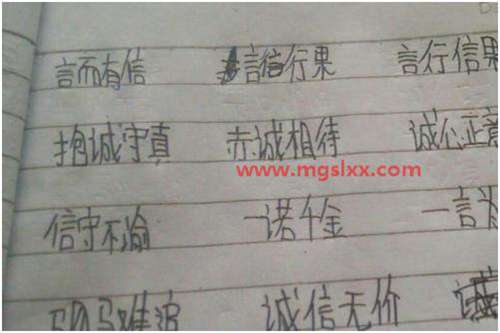 言而有信 言信行果 言行信果
抱诚守真 赤诚相待 诚心正意
www.mgslxx.com
信守不渝 一诺千金 一言为
驷马难追 诚信无价 诚